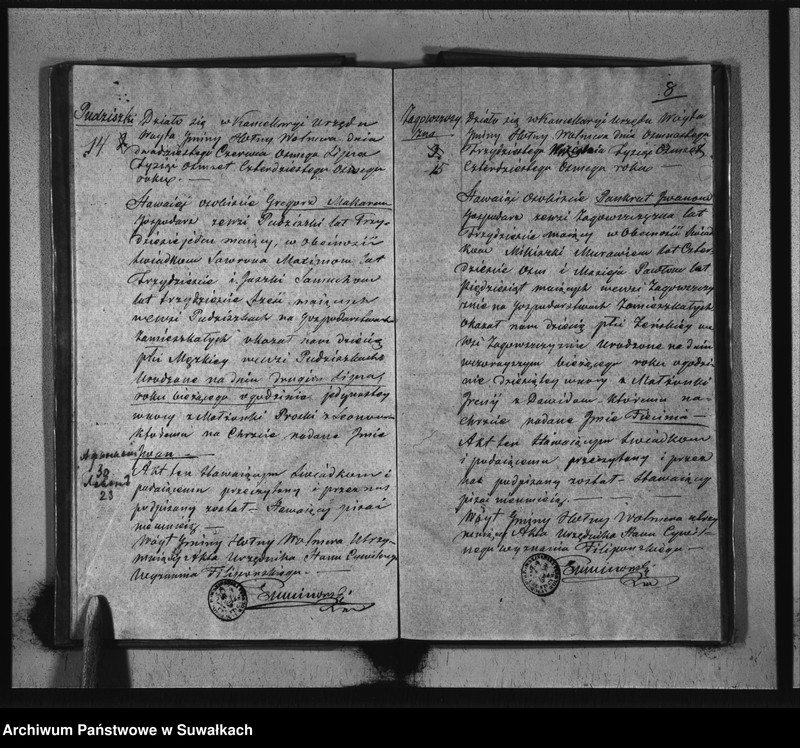 Pudziszki
14
Działo się w Kancellaryi Urzędu
Wóyta Gminy Hołny Wolmera dnia
dwudziestego Czerwca Ósmego Lipca
Tysiąc Ośmset Czterdziestego Ósmego
roku.
Stawaiąc osobiście Gregorz Makarow
Gospodarz zewsi Pudziszki lat Trzy-
dzieście jeden maiący, w obecności
świadkow Maximow lat
Trzydzieście i Samuchow
lat Trzydzieście maiących
wewsi Pudziszkach na Gospodarstwach
Zamieszkałych okazał nam dziecię
płci Męzkiey wewsi Pudziszkach
Urodzone na dniu drugim Lipca
roku bieżącego ogodzinie jedynastey
wnocy z Małżonki Proski z Leonow
któremu na Chrzcie nadane Jmie
Jwan
30
23
Akt ten Stawaiącym świadkom i
podaiącemu przeczytany i przez nas
podpisany został - Stawaiący pisać
nieumieią. —
Wóyt Gminy Hołny Wolmera Utrzy-
muiący Akta Urzędnika Stanu Cywilnego
Wyznania Filiponskiego. —
8
Zagowerszczy
zna
15
Działo się wKancellaryi Urzędu Wóyta
Gminy Hołny Wolmera dnia Osmnastego
Trzydziestego Tysiąc Ośmset
Czterdziestego Ósmego roku
Stawaiąc Osobiście Pankrat Jwanow
Gospodarz zewsi lat
Trzydzieście maiący w Obecności Świad-
kow Mikiszki Murawiew lat Czter-
dzieście Osm i Macieja Pawłow lat
Pięćdziesiąt maiących wewsi
na Gospodarstwach Zamieszkałych
okazał nam dziecię płci Żeńskiey we
wsi Urodzone na dniu
wczorayszym bieżącego roku ogodzi-
nie dziesiątey wnocy z Małżonki
Jreny z Dawidow - któremu na
Chrzcie nadane Jmie
Akt ten Stawaiącym świadkom
i podaiącemu przeczytany i przez
nas podpisany został - Stawaiący
pisać nieumieią. —
Wóyt Gminy Hołny Wolmera utrzy-
muiący Akta Urzędnika Stanu Cywil-
nego wyznania Filiponskiego. —
Archiwum Państwowe w Suwałkach